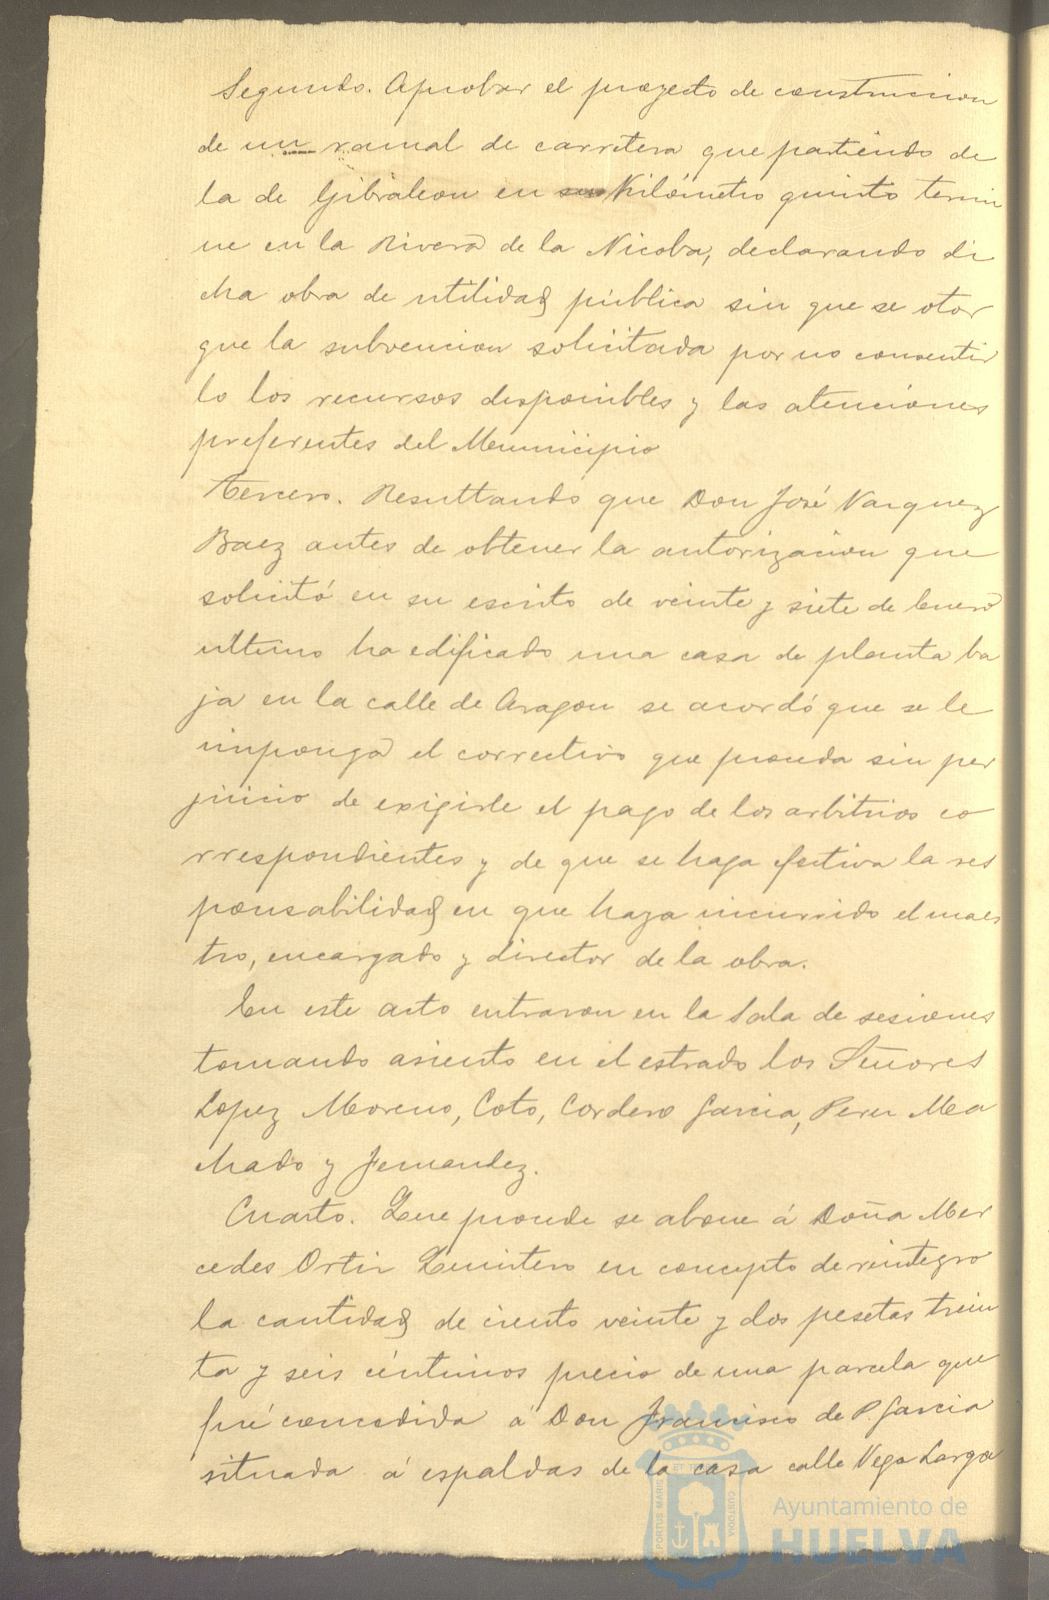 Segundo. Aprobar el proyecto de construccion
de un ramal de carretera que partiendo de
la de Gibraleon en su Kilómetro quinto termi
ne en la Rivera de la Nicoba, declarando di
cha obra de utilidad pública sin que se otor
gue la subvencion solicitada por no consentir
lo los recursos disponibles y las atenciones
preferentes del Municipio
Tercero. Resultando que Don José Vazquez
Baez antes de obtener la autorizacion que
solicitó en su escrito de veinte y siete de Enero
ultimo ha edificado una casa de planta ba
ja en la calle de Aragon se acordó que se le
imponga el correctivo que proceda sin per
juicio de exigirle el pago de los arbitrios co
rrespondientes y de que se haga efectiva la res
ponsabilidad en que haya incurrido el maes
tro, encargado y director de la obra.
En este acto entraron en la Sala de sesiones
tomando asiento en el estrado los Señores
Lopez Moreno, Coto, Cordero Garcia, Perez Ma
chado y Fernandez.
Cuarto. Que procede se abone á Doña Mer
cedes Ortiz Quintero en concepto de reintegro
la cantidad de ciento veinte y dos pesetas trein
ta y seis céntimos precio de una parcela que
fué concedida á Don Francisco de P. Garcia
situada á espaldas de la casa calle Vega Larga
PORTUS MARIS ET TERRAE CUSTODIA
Ayuntamiento de
HUELVA